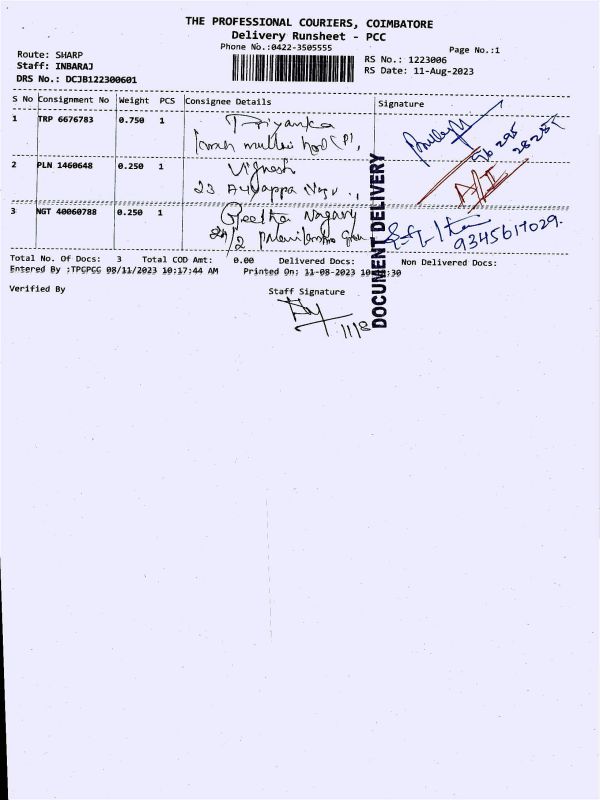 THE PROFESSIONAL COURIERS, COIMBATORE
Delivery Runsheet - PCC
Phone No.:0422-3505555
Page No.:1
Route: SHARP
Staff: INBARAJ
DRS No.: DCJB122300601
RS No.: 1223006
RS Date: 11-Aug-2023
S No Consignment No Weight PCS Consignee Details Signature
1 TRP 6676783 0.750 1 Priyanka
2 PLN 1460648 0.250 1 Vignesh
23 Ayyappa
3 NGT 40060788 0.250 1 Geetha Nagaraj
9345617029.
DOCUMENT DELIVERY
Total No. Of Docs: 3 Total COD Amt: 0.00 Delivered Docs: Non Delivered Docs:
Entered By :TPCPCC 08/11/2023 10:17:44 AM Printed On: 11-08-2023
Verified By
Staff Signature
11/8